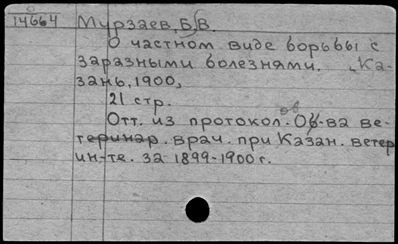 14664 Мурзаев, Б.В.
О частном виде борьбы с
заразными болезнями. Ка-
зань, 1900,
21 стр.
Отт. из протокол. Об-ва ве-
теринар. врач. при Казан. ветер
ин-те. за 1899-1900 г.